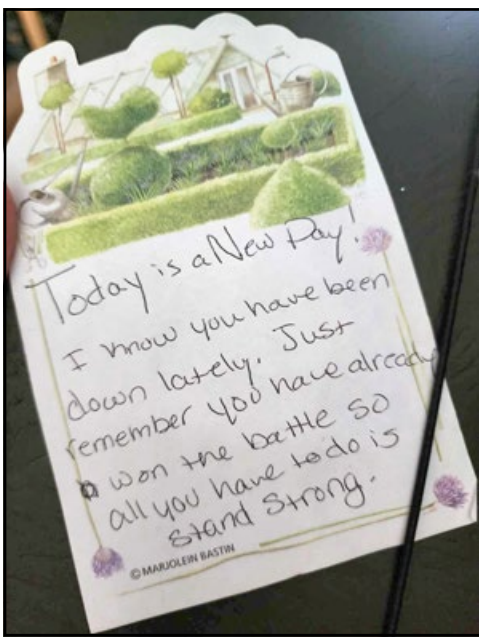 Today is a New Day!
I know you have been
down lately. Just
remember you have already
won the battle so
all you have to do is
stand strong.
© MARJOLEIN BASTIN